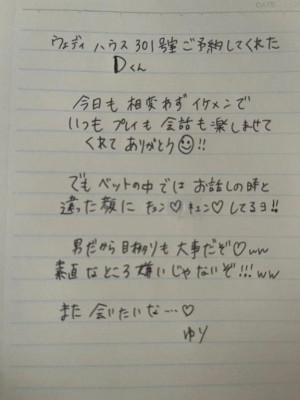 ウェディ ハウス 301号室 ご予約してくれた
Dくん
今日も 相変わず イケメンで
いつも プレイも 会話も 楽しませて
くれて ありがとう☺!!
でも ベットの中では お話しの時と
違った顔に キュン♡キュン♡してるヨ!!
男だから 目わりも 大事だぞ♡ww
素直なところ 嫌いじゃないぞ!!!ww
また 会いたいな…♡
ゆり